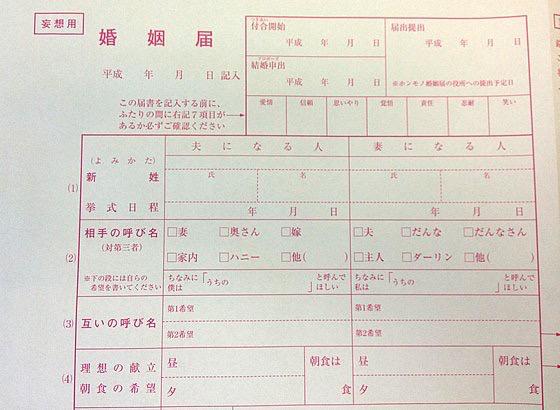 妄想用
婚姻届
平成 年 月 日 記入
この届書を記入する前に、
ふたりの間に右記7項目が
あるか必ずご確認ください
つきあい
付合開始
平成 年 月 日
プロポーズ
結婚申出
平成 年 月 日
届出提出
平成 年 月 日
※ホンモノ婚姻届の役所への提出予定日
愛情 信頼 思いやり 覚悟 責任 忍耐 笑い
夫になる人 妻になる人
(1)
(よみかた)
新姓
氏 名 氏 名
挙式日程
年 月 日 年 月 日
(2)
相手の呼び名
(対第三者)
※下の段には自らの
希望を書いてください
□妻 □奥さん □嫁
□家内 □ハニー □他( )
ちなみに
僕は
「うちの
と呼んで
ほしい
□夫 □だんな □だんなさん
□主人 □ダーリン □他( )
ちなみに
私は
「うちの
と呼んで
ほしい
(3)
互いの呼び名
第1希望 第1希望
第2希望 第2希望
(4)
理想の献立
朝食の希望
昼 朝食は 昼 朝食は
夕 食 夕 食